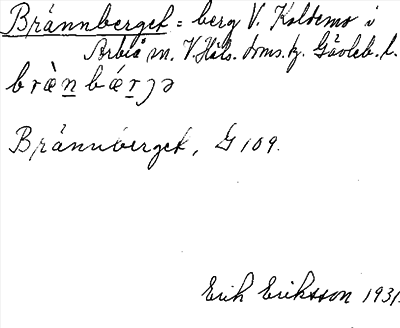 Brännberget = berg V. Koldemo i
Arbrå m. V. Häls. doms. h. Gävleb. l.
bræ̀n bǽrɟə
Brännberget, G 109.
Erik Eriksson 1931.